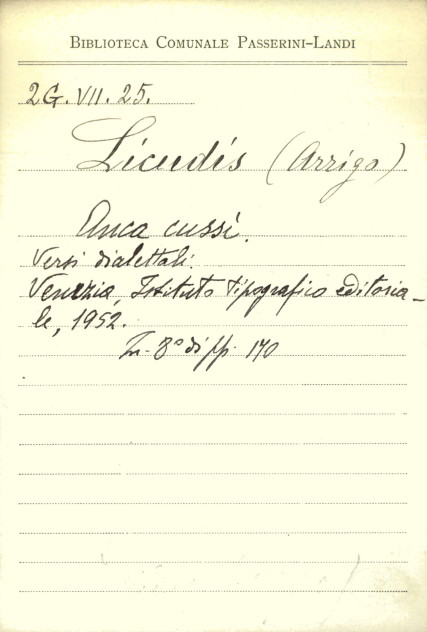 BIBLIOTECA COMUNALE PASSERINI-LANDI
2G. VII. 25.
Licudis (Arrigo)
Anca cussi.
Versi dialettali.
Venezia, Istituto tipografico editoria-
le, 1952.
In-8° di pp. 170